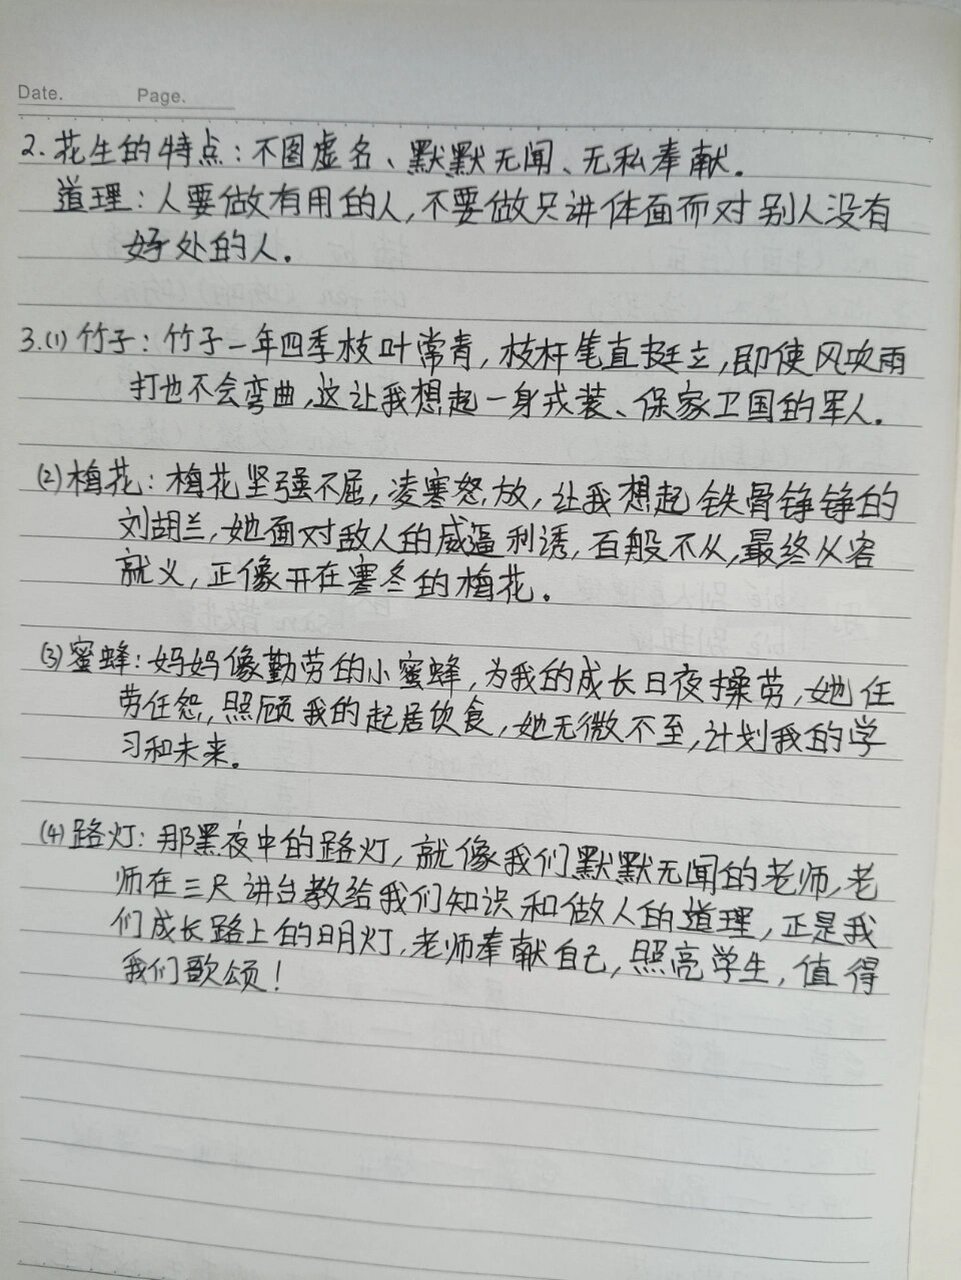 Date. Page.
2. 花生的特点：不图虚名、默默无闻、无私奉献。
道理：人要做有用的人，不要做只讲体面而对别人没有
好处的人。
3.(1) 竹子：竹子一年四季枝叶常青，枝杆笔直挺立，即使风吹雨
打也不会弯曲，这让我想起一身戎装、保家卫国的军人。
(2) 梅花：梅花坚强不屈，凌寒怒放，让我想起铁骨铮铮的
刘胡兰，她面对敌人的威逼利诱，百般不从，最终从容
就义，正像开在寒冬的梅花。
(3) 蜜蜂：妈妈像勤劳的小蜜蜂，为我的成长日夜操劳，她任
劳任怨，照顾我的起居饮食，她无微不至，计划我的学
习和未来。
(4) 路灯：那黑夜中的路灯，就像我们默默无闻的老师，老
师在三尺讲台教给我们知识和做人的道理，正是我
们成长路上的明灯，老师奉献自己，照亮学生，值得
我们歌颂！